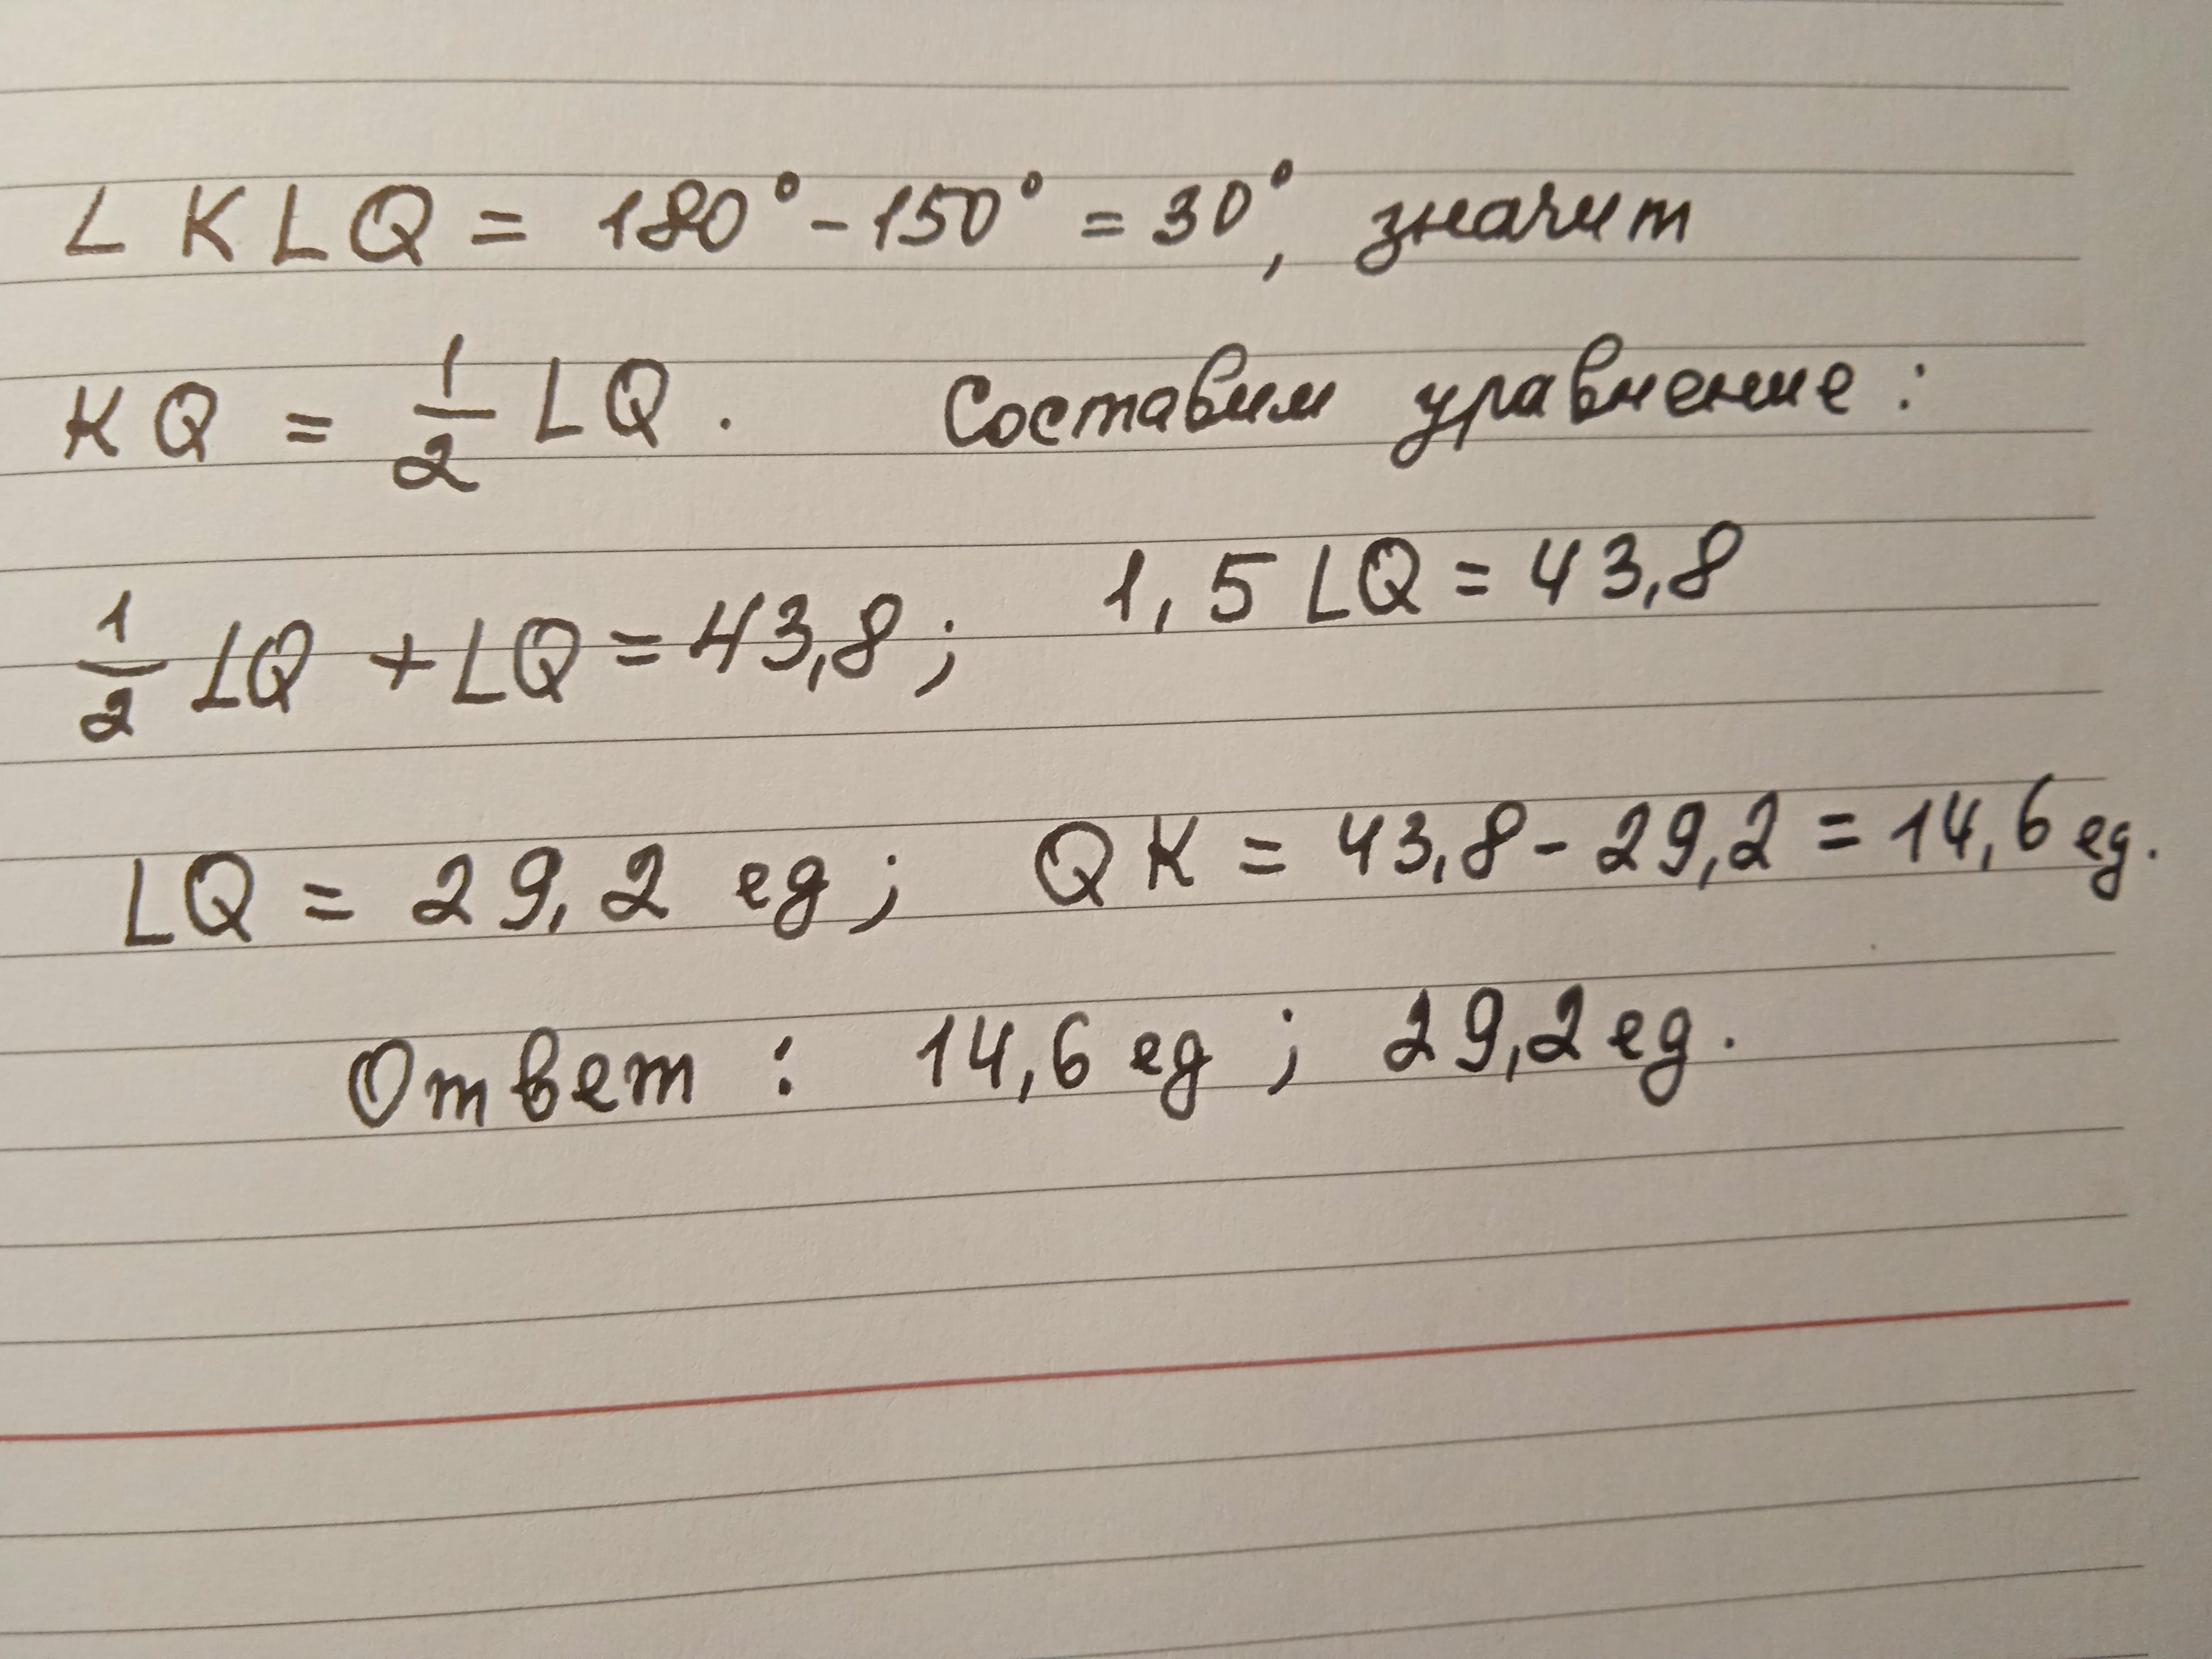 ∠KLQ = 180° - 150° = 30°, значит
KQ = 1/2 LQ. Составим уравнение:
1/2 LQ + LQ = 43,8; 1,5 LQ = 43,8
LQ = 29,2 ед; QK = 43,8 - 29,2 = 14,6 ед.
Ответ: 14,6 ед; 29,2 ед.